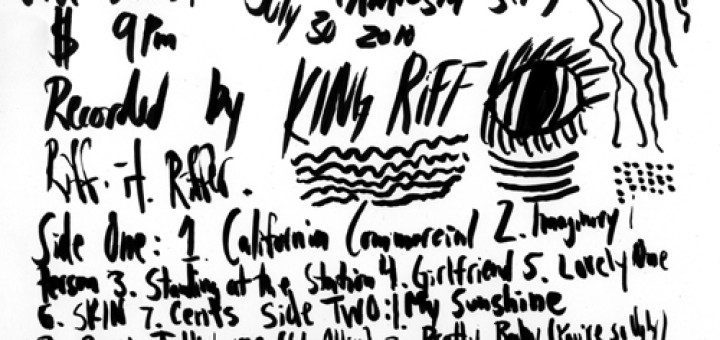 July 30 2010
$ 9pm
Recorded by KING RiFF
Riff. it. Riffer.
Side One: 1. California Commercial 2. Imaginary
Person 3. Standing at the Station 4. Girlfriend 5. Lovely One
6. SKIN 7. Cents Side TWO: 1 My Sunshine
Pretty Baby (You're so Ugly)